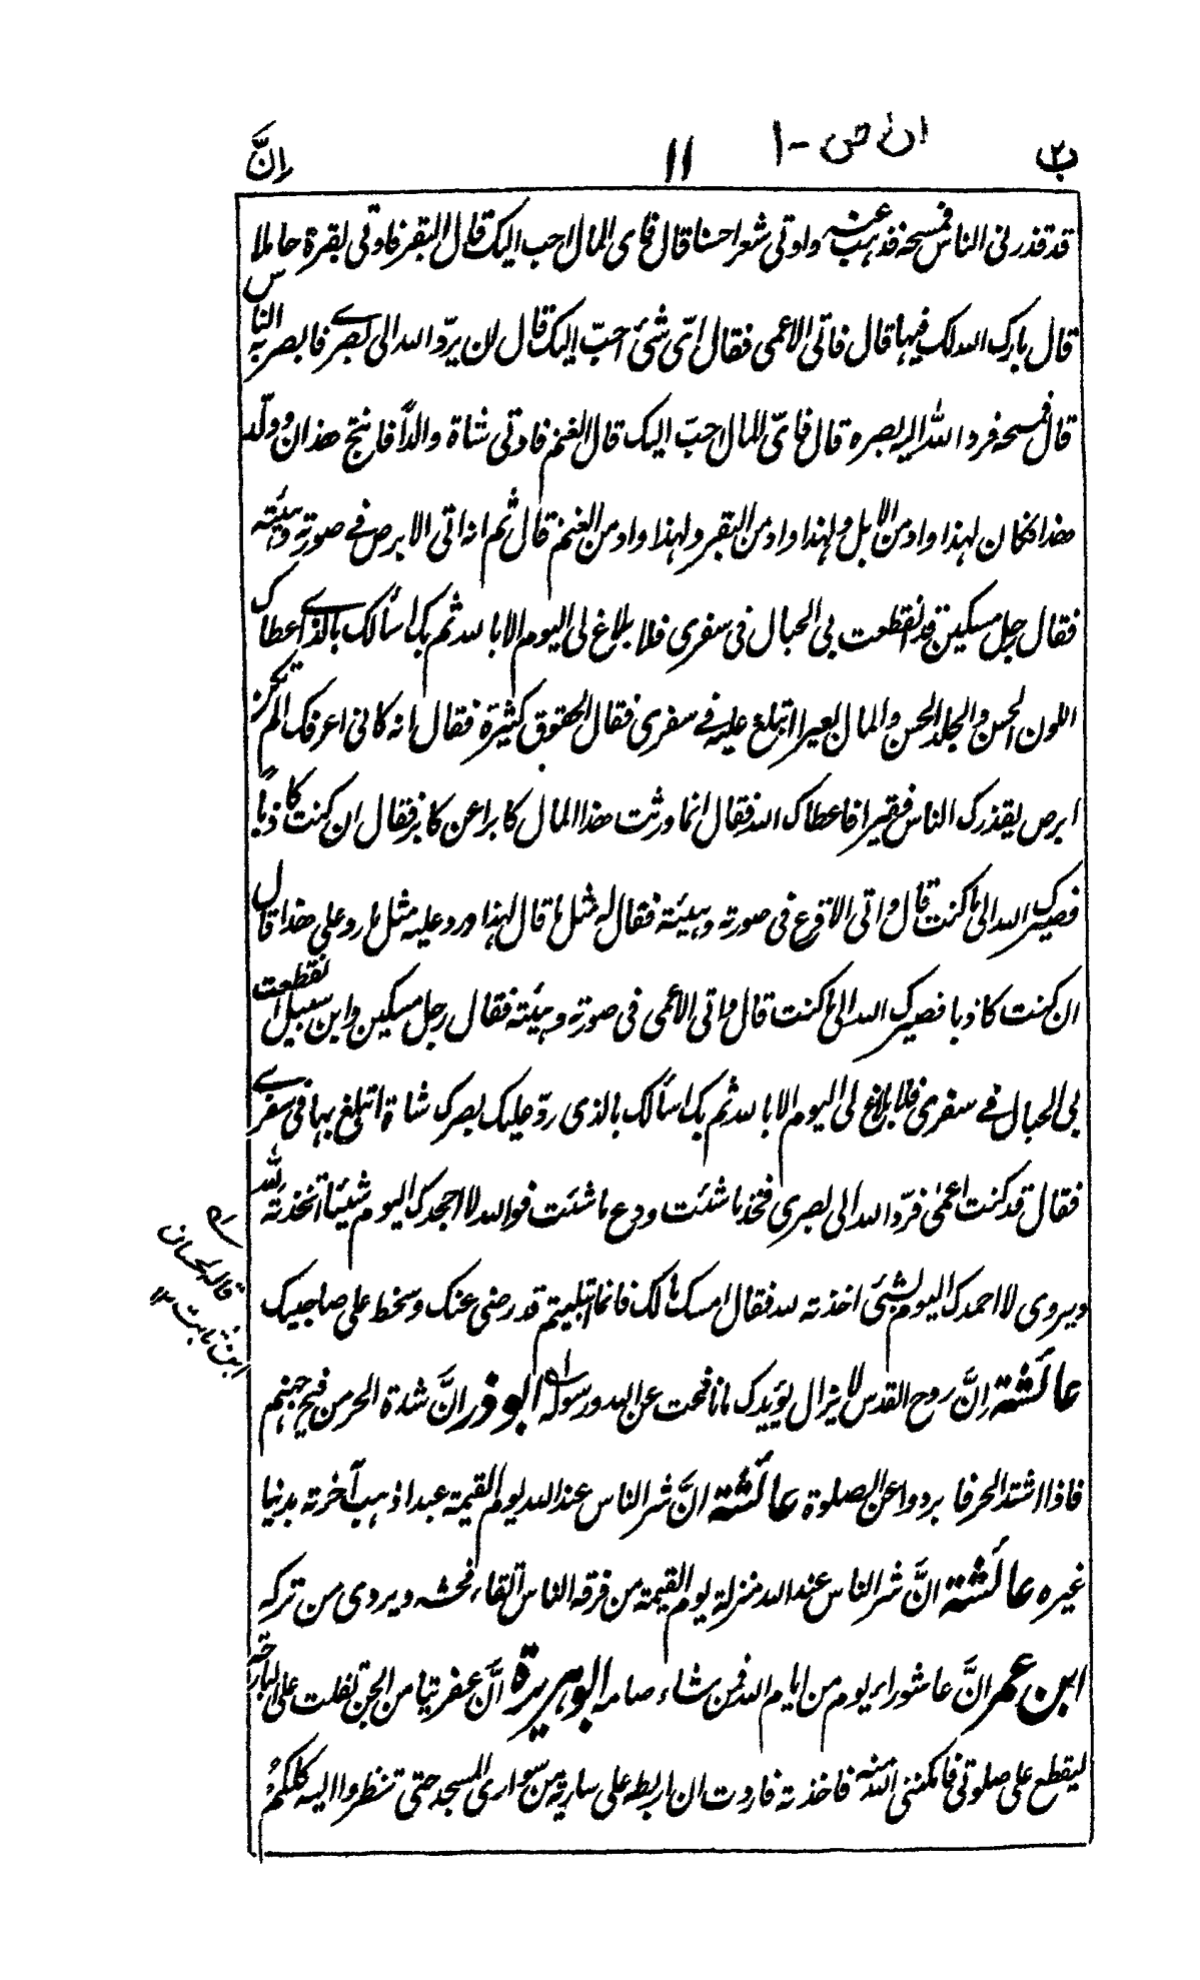 ب۲ ان ض -۱ ۱۱ اِنَّ
قد قذرنی الناس فمسحه فذهب عنه واوتی شعرا حسنا قال فای المال احب الیک قال البقر فاوتی بقرة حاملا
قال بارک الله لک فیها قال فاتی الاعمی فقال ایّ شیٔ احبّ الیک قال ان یردّ الله الی بصرے فابصر به الناس
قال فمسحه فرد الله الیه بصره قال فایّ المال احبّ الیک قال الغنم فاوتی شاة والداً فانتج هذان وولّد
هذا فکان لهذا واد من الابل ولهذا واد من البقر ولهذا واد من الغنم قال ثم انه اتی الابرص فے صورته وهیئته
فقال رجل مسکین قد انقطعت بی الحبال فی سفری فلا بلاغ لی الیوم الا بالله ثم بک اسألک بالذے اعطاک
اللون الحسن والجلد الحسن والمال بعیرا اتبلغ علیه فے سفری فقال الحقوق کثیرة فقال انه کانی اعرفک الم تکن
ابرص یقذرک الناس فقیرا فاعطاک الله فقال انما ورثت هذا المال کابرا عن کابر فقال ان کنت کاذباً
فصیرک الله الی ما کنت قال واتی الاقرع فی صورته وهیئته فقال له مثل ما قال لهذا ورد علیه مثل ما رد علی هذا قال
ان کنت کاذبا فصیرک الله الی ما کنت قال واتی الاعمی فی صورته وهیئته فقال رجل مسکین وابن سبیل انقطعت
بی الحبال فے سفری فلا بلاغ لی الیوم الا بالله ثم بک اسألک بالذی ردّ علیک بصرک شاة اتبلغ بها فی سفرے
فقال قد کنت اعمی فردّ الله الی بصری فخذ ما شئت ودع ما شئت فوالله لا اجهدک الیوم شیئا اتخذته لله
ویروی لا احمدک الیوم بشیٔ اخذته لله فقال امسک مالک فانما ابتلیتم قد رضی عنک وسخط علی صاحبیک
عائشة اِنَّ روح القدس لا یزال یؤیدک ما نافحت عن الله ورسوله ابو ذر انَّ شدة الحر من فیح جهنم
قاله لحسان
ابن ثابت ۱۲
فاذا اشتد الحر فابردوا عن الصلوة عائشة انَّ شر الناس عند الله یوم القیمة عبد اذهب آخرته بدنیا
غیره عائشة انَّ شر الناس عند الله منزلة یوم القیمة من فرقه الناس اتقاء فحشه ویروی من ترکه
ابن عمر انَّ عاشوراء یوم من ایام الله فمن شاء صامه ابو هریرة انَّ عفریتا من الجن تفلت علی البارحة
لیقطع علی صلوتی فامکننی الله منه فاخذته فاردت ان اربطه علی ساریة من سواری المسجد حتی تنظروا الیه کلکم